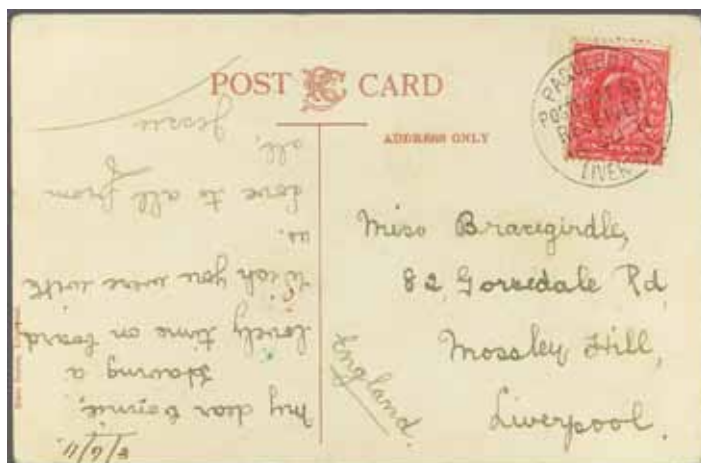 POST CARD
ADDRESS ONLY
PAQUEBOT
POSTED AT SEA
LIVER
Miss Bracegirdle,
82, Gorsedale Rd,
Mossley Hill,
Liverpool.
England.
My dear
Having a
lovely time on board
Wish you were with
us.
Love to all from
all,
Jessie